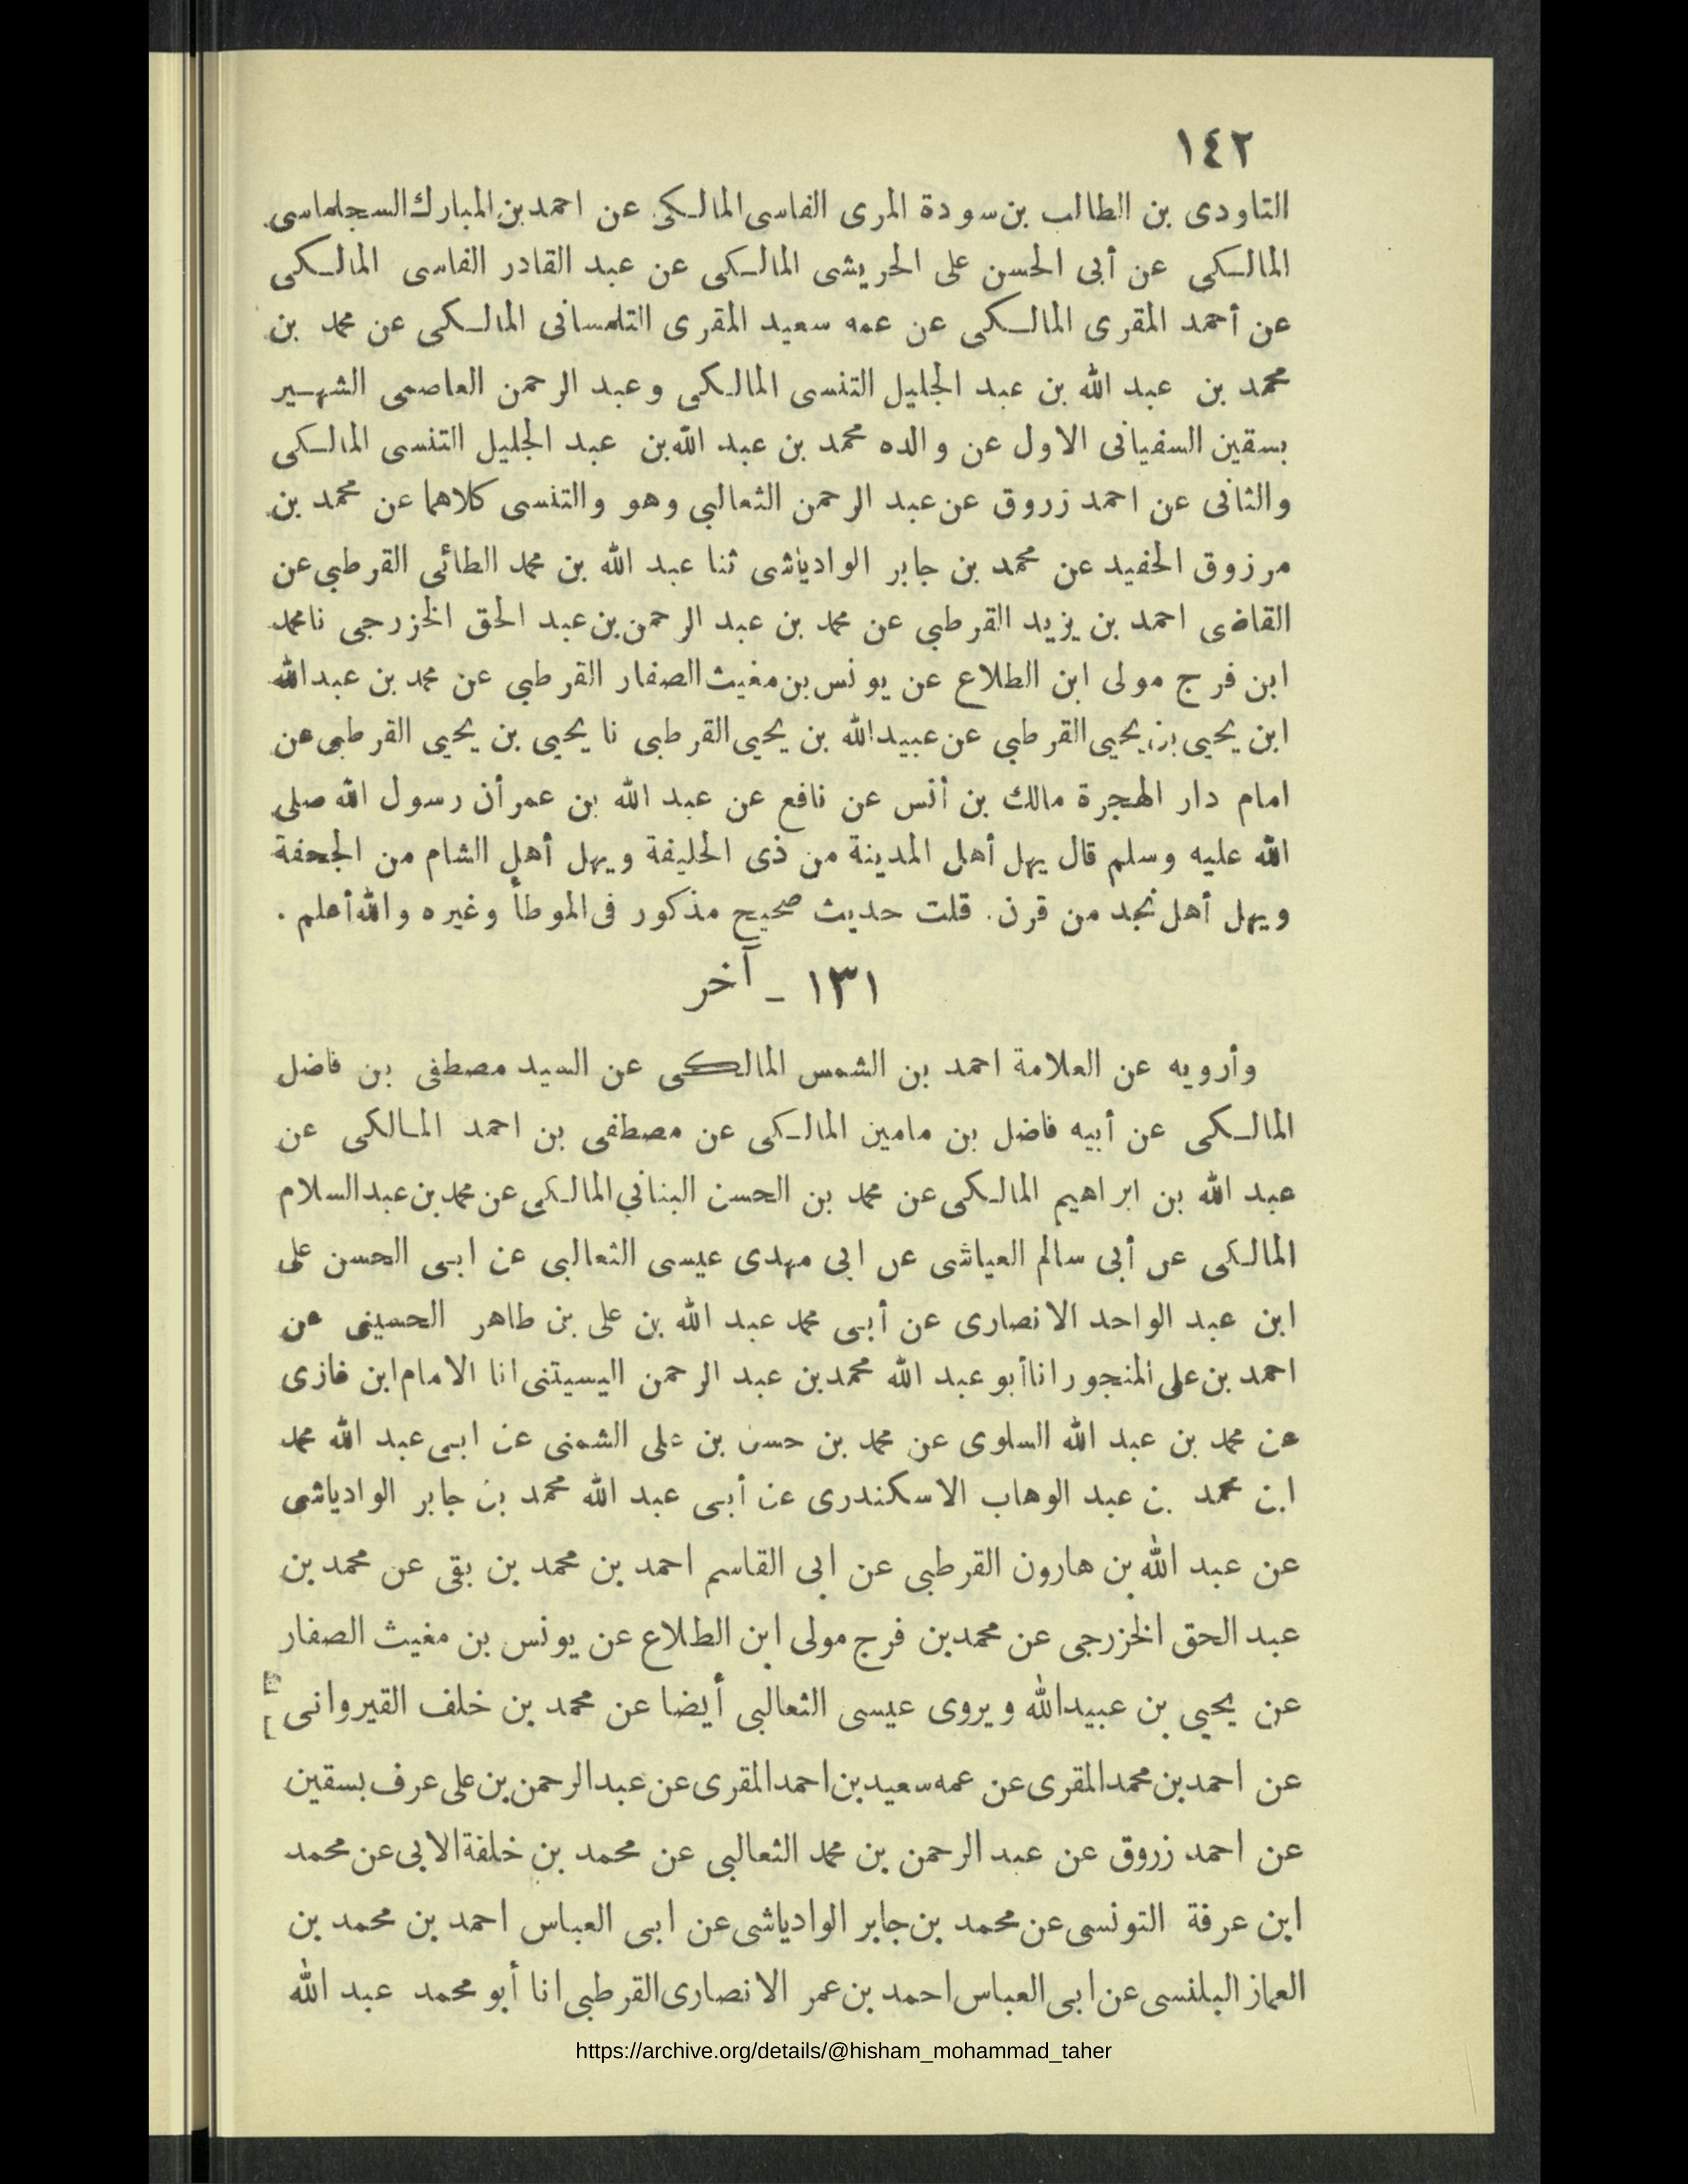 ١٤٢
التاودى بن الطالب بن سودة المرى الفاسى المالكى عن احمد بن المبارك السجلماسى
المالكى عن أبى الحسن على الحريشى المالكى عن عبد القادر الفاسى المالكى
عن أحمد المقرى المالكى عن عمه سعيد المقرى التلمسانى المالكى عن محمد بن
محمد بن عبد الله بن عبد الجليل التنسى المالكى وعبد الرحمن العاصمى الشهير
بسقين السفيانى الاول عن والده محمد بن عبد الله بن عبد الجليل التنسى المالكى
والثانى عن احمد زروق عن عبد الرحمن الثعالبي وهو والتنسى كلاهما عن محمد بن
مرزوق الحفيد عن محمد بن جابر الوادياشى ثنا عبد الله بن محمد الطائى القرطبي عن
القاضى احمد بن يزيد القرطبي عن محمد بن عبد الرحمن بن عبد الحق الخزرجى نا محمد
ابن فرج مولى ابن الطلاع عن يونس بن مغيث الصفار القرطبي عن محمد بن عبد الله
ابن يحيى بن يحيى القرطبي عن عبيد الله بن يحيى القرطبى نا يحيى بن يحيى القرطبى عن
امام دار الهجرة مالك بن أنس عن نافع عن عبد الله بن عمر أن رسول الله صلى
الله عليه وسلم قال يهل أهل المدينة من ذى الحليفة ويهل أهل الشام من الجحفة
ويهل أهل نجد من قرن. قلت حديث صحيح مذكور فى الموطأ وغيره والله أعلم .
١٣١ ـ آخر
وأرويه عن العلامة احمد بن الشمس المالكى عن السيد مصطفى بن فاضل
المالكى عن أبيه فاضل بن مامين المالكى عن مصطفى بن احمد المالكى عن
عبد الله بن ابراهيم المالكى عن محمد بن الحسن البناني المالكى عن محمد بن عبد السلام
المالكى عن أبى سالم العياشى عن ابى مهدى عيسى الثعالبى عن ابى الحسن على
ابن عبد الواحد الانصارى عن أبى محمد عبد الله بن على بن طاهر الحسينى عن
احمد بن على المنجور انا أبو عبد الله محمد بن عبد الرحمن اليسيتنى انا الامام ابن غازى
عن محمد بن عبد الله السلوى عن محمد بن حسن بن على الشمنى عن ابى عبد الله محمد
ابن محمد بن عبد الوهاب الاسكندرى عن أبى عبد الله محمد بن جابر الوادياشى
عن عبد الله بن هارون القرطبى عن ابى القاسم احمد بن محمد بن بقى عن محمد بن
عبد الحق الخزرجى عن محمد بن فرج مولى ابن الطلاع عن يونس بن مغيث الصفار
عن يحيى بن عبيد الله ويروى عيسى الثعالبى أيضا عن محمد بن خلف القيروانى
عن احمد بن محمد المقرى عن عمه سعيد بن احمد المقرى عن عبد الرحمن بن على عرف بسقين
عن احمد زروق عن عبد الرحمن بن محمد الثعالبى عن محمد بن خلفة الابى عن محمد
ابن عرفة التونسى عن محمد بن جابر الوادياشى عن ابى العباس احمد بن محمد بن
العماز البلنسى عن ابى العباس احمد بن عمر الانصارى القرطبى انا أبو محمد عبد الله
https://archive.org/details/@hisham_mohammad_taher